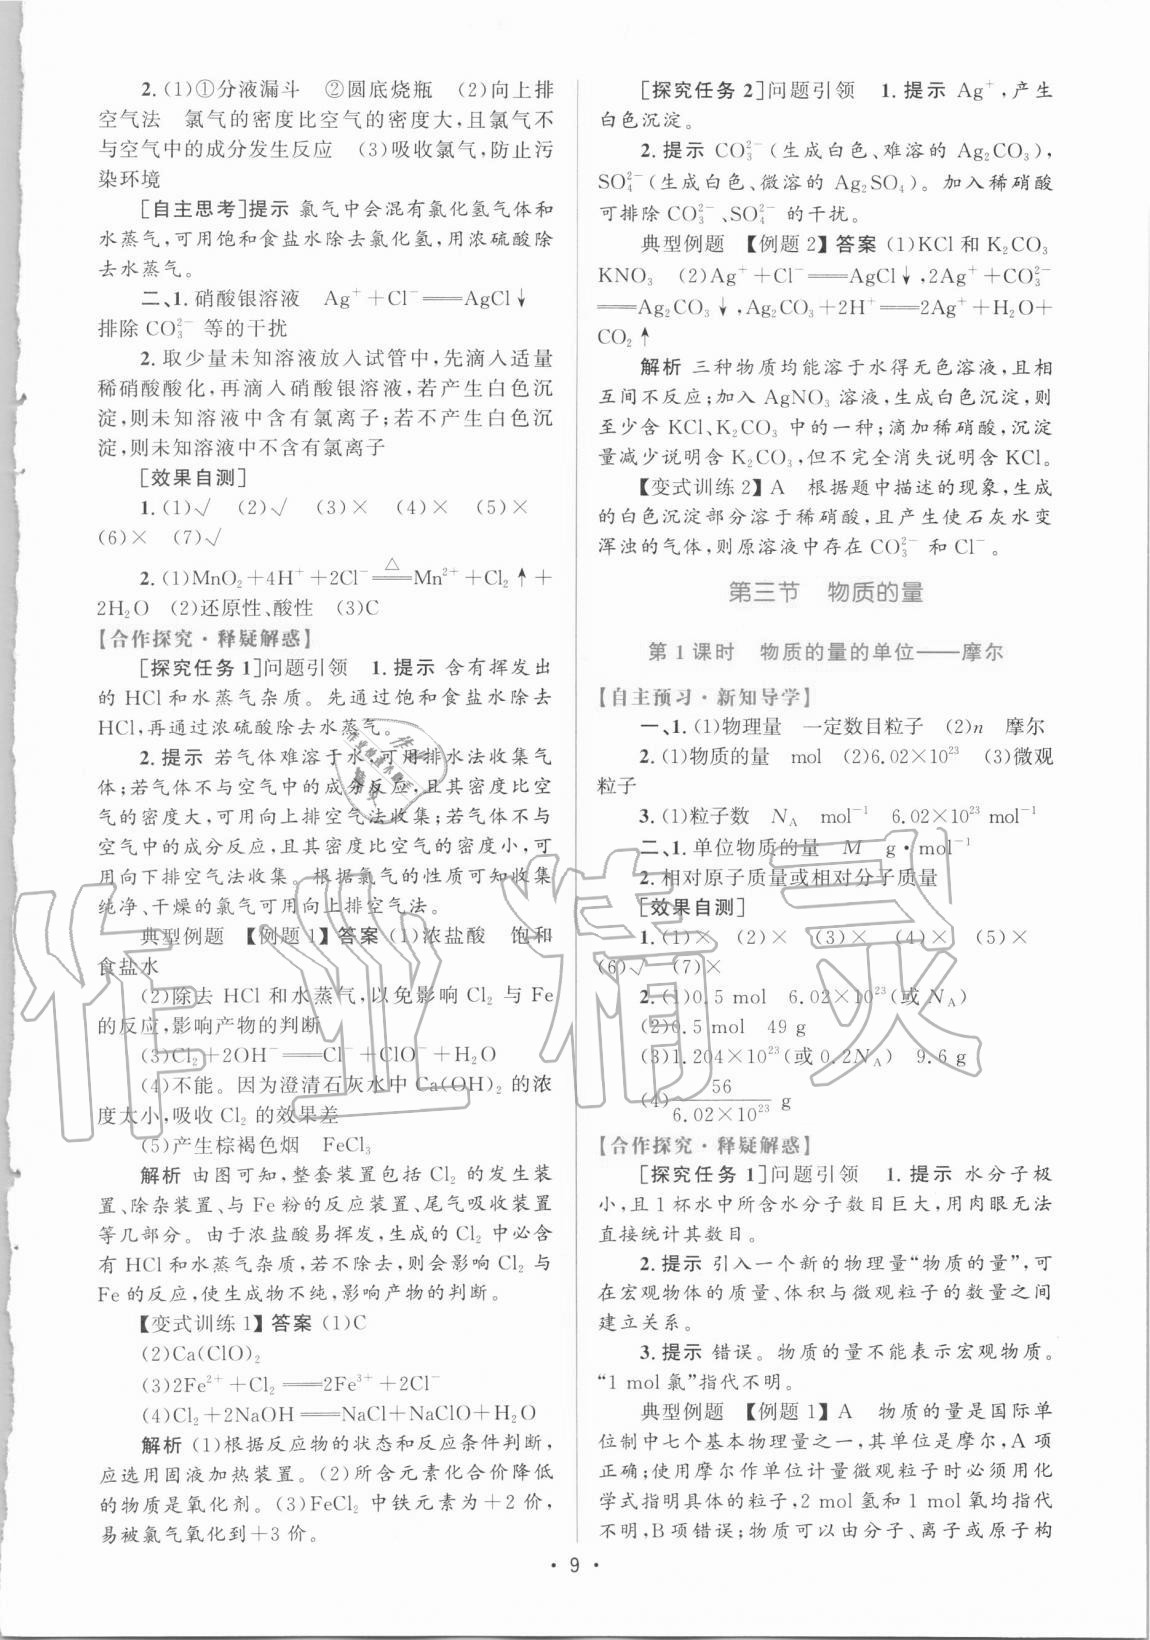 2.(1)①分液漏斗　②圆底烧瓶　(2)向上排
空气法　氯气的密度比空气的密度大,且氯气不
与空气中的成分发生反应　(3)吸收氯气,防止污
染环境
[自主思考]提示 氯气中会混有氯化氢气体和
水蒸气,可用饱和食盐水除去氯化氢,用浓硫酸除
去水蒸气。
二、1.硝酸银溶液　Ag⁺+Cl⁻══AgCl↓
排除CO₃²⁻ 等的干扰
2.取少量未知溶液放入试管中,先滴入适量
稀硝酸酸化,再滴入硝酸银溶液,若产生白色沉
淀,则未知溶液中含有氯离子;若不产生白色沉
淀,则未知溶液中不含有氯离子
[效果自测]
1.(1)√　(2)√　(3)×　(4)×　(5)×
(6)×　(7)√
2.(1)MnO₂+4H⁺+2Cl⁻══△Mn²⁺+Cl₂↑+
2H₂O　(2)还原性、酸性　(3)C
【合作探究·释疑解惑】
[探究任务1]问题引领　1.提示 含有挥发出
的 HCl 和水蒸气杂质。先通过饱和食盐水除去
HCl,再通过浓硫酸除去水蒸气。
2.提示 若气体难溶于水,可用排水法收集气
体;若气体不与空气中的成分反应,且其密度比空
气的密度大,可用向上排空气法收集;若气体不与
空气中的成分反应,且其密度比空气的密度小,可
用向下排空气法收集。根据氯气的性质可知收集
纯净、干燥的氯气可用向上排空气法。
典型例题　【例题1】答案 (1)浓盐酸　饱和
食盐水
(2)除去 HCl 和水蒸气,以免影响 Cl₂ 与 Fe
的反应,影响产物的判断
(3)Cl₂+2OH⁻══Cl⁻+ClO⁻+H₂O
(4)不能。因为澄清石灰水中 Ca(OH)₂ 的浓
度太小,吸收 Cl₂ 的效果差
(5)产生棕褐色烟　FeCl₃
解析 由图可知,整套装置包括 Cl₂ 的发生装
置、除杂装置、与 Fe 粉的反应装置、尾气吸收装置
等几部分。由于浓盐酸易挥发,生成的 Cl₂ 中必含
有 HCl 和水蒸气杂质,若不除去,则会影响 Cl₂ 与
Fe 的反应,使生成物不纯,影响产物的判断。
【变式训练1】答案 (1)C
(2)Ca(ClO)₂
(3)2Fe²⁺+Cl₂══2Fe³⁺+2Cl⁻
(4)Cl₂+2NaOH══NaCl+NaClO+H₂O
解析 (1)根据反应物的状态和反应条件判断,
应选用固液加热装置。(2)所含元素化合价降低
的物质是氧化剂。(3)FeCl₂ 中铁元素为+2价,
易被氯气氧化到+3价。
[探究任务2]问题引领　1.提示 Ag⁺,产生
白色沉淀。
2.提示 CO₃²⁻(生成白色、难溶的 Ag₂CO₃),
SO₄²⁻(生成白色、微溶的 Ag₂SO₄)。加入稀硝酸
可排除 CO₃²⁻、SO₄²⁻ 的干扰。
典型例题　【例题2】答案 (1)KCl 和 K₂CO₃
KNO₃　(2)Ag⁺+Cl⁻══AgCl↓,2Ag⁺+CO₃²⁻
══Ag₂CO₃↓,Ag₂CO₃+2H⁺══2Ag⁺+H₂O+
CO₂↑
解析 三种物质均能溶于水得无色溶液,且相
互间不反应;加入 AgNO₃ 溶液,生成白色沉淀,则
至少含 KCl、K₂CO₃ 中的一种;滴加稀硝酸,沉淀
量减少说明含 K₂CO₃,但不完全消失说明含 KCl。
【变式训练2】A　根据题中描述的现象,生成
的白色沉淀部分溶于稀硝酸,且产生使石灰水变
浑浊的气体,则原溶液中存在 CO₃²⁻ 和 Cl⁻。
第三节　物质的量
第1课时　物质的量的单位——摩尔
【自主预习·新知导学】
一、1.(1)物理量　一定数目粒子　(2)n　摩尔
2.(1)物质的量　mol　(2)6.02×10²³　(3)微观
粒子
3.(1)粒子数　N_A　mol⁻¹　6.02×10²³ mol⁻¹
二、1.单位物质的量　M　g·mol⁻¹
2.相对原子质量或相对分子质量
[效果自测]
1.(1)×　(2)×　(3)×　(4)×　(5)×
(6)√　(7)×
2.(1)0.5 mol　6.02×10²³(或 N_A)
(2)0.5 mol　49 g
(3)1.204×10²³(或 0.2N_A)　9.6 g
(4)56/(6.02×10²³) g
【合作探究·释疑解惑】
[探究任务1]问题引领　1.提示 水分子极
小,且1杯水中所含水分子数目巨大,用肉眼无法
直接统计其数目。
2.提示 引入一个新的物理量“物质的量”,可
在宏观物体的质量、体积与微观粒子的数量之间
建立关系。
3.提示 错误。物质的量不能表示宏观物质。
“1 mol 氯”指代不明。
典型例题　【例题1】A　物质的量是国际单
位制中七个基本物理量之一,其单位是摩尔,A 项
正确;使用摩尔作单位计量微观粒子时必须用化
学式指明具体的粒子,2 mol 氢和 1 mol 氧均指代
不明,B 项错误;物质可以由分子、离子或原子构
·9·
作业精灵